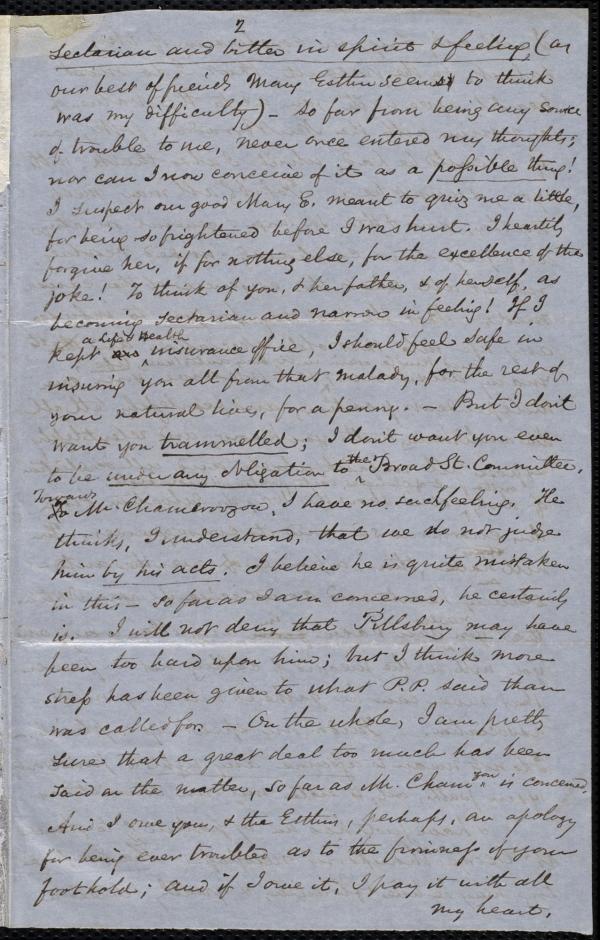 2
sectarian and bitter in spirit & feeling, (as
our best of friends Mary Esthin seems to think
was my difficulty) - so far from being any source
of trouble to me, never once entered my thoughts;
nor can I now conceive of it as a possible thing!
I suspect our good Mary E. meant to quiz me a little,
for being so frightened before I was hurt. I heartily
forgive her, if for nothing else, for the excellence of the
joke! To think of you, & her father, & of herself, as
becoming sectarian and narrow in feeling! If I
a Life & Health
kept an insurance office, I should feel safe in
insuring you all from that malady, for the rest of
your natural lives, for a penny. - But I don't
want you trammelled; I don't want you even
to be under any obligation to the Broad St. Committee.
Towards
To Mr. Chamerovzow, I have no such feeling. He
thinks, I understand, that we do not judge
him by his acts. I believe he is quite mistaken
in this - so far as I am concerned, he certainly
is. I will not deny that Pillsbury may have
been too hard upon him; but I think more
stress has been given to what P.P. said than
was called for. - On the whole, I am pretty
sure that a great deal too much has been
said on the matter, so far as Mr. Cham. is concerned.
And I owe you, & the Estlins, perhaps, an apology
for being ever troubled as to the firmness of your
foothold; and if I owe it, I pay it with all
my heart.